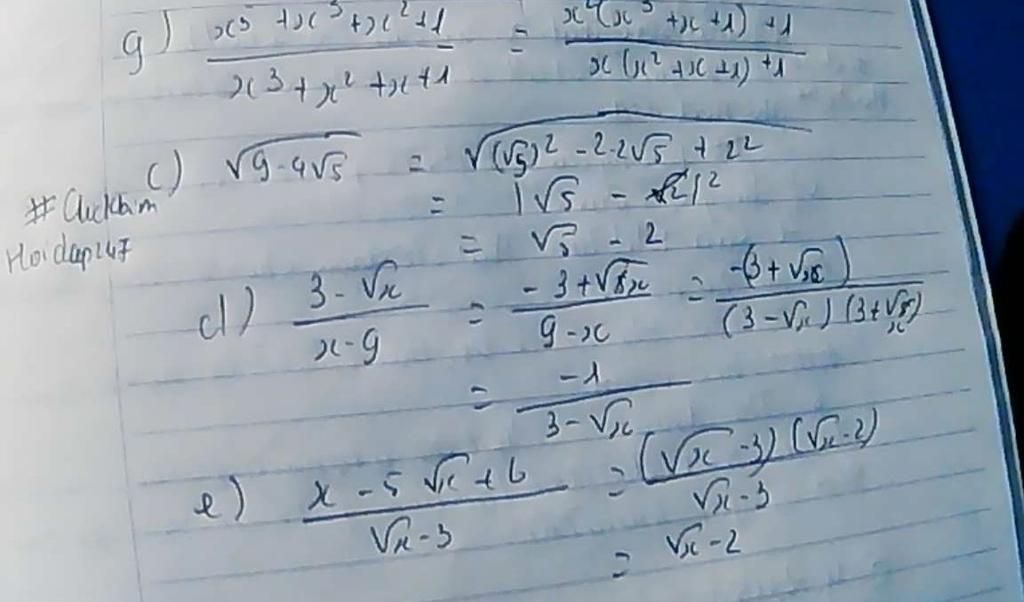 g) \frac{x^5 + x^3 + x^2 + 1}{x^3 + x^2 + x + 1} = \frac{x^2(x^3 + x + 1) + 1}{x(x^2 + x + 1) + 1}
c) \sqrt{9 - 4\sqrt{5}} = \sqrt{(\sqrt{5})^2 - 2 \cdot 2\sqrt{5} + 2^2}
#Clickbim
Hoidap247
= |\sqrt{5} - 2|^2
= \sqrt{5} - 2
d) \frac{3 - \sqrt{x}}{x - 9} = \frac{-3 + \sqrt{x}}{9 - x} = \frac{-(3 + \sqrt{x})}{(3 - \sqrt{x})(3 + \sqrt{x})}
= \frac{-1}{3 - \sqrt{x}}
e) \frac{x - 5\sqrt{x} + 6}{\sqrt{x} - 3} = \frac{(\sqrt{x} - 3)(\sqrt{x} - 2)}{\sqrt{x} - 3}
= \sqrt{x} - 2